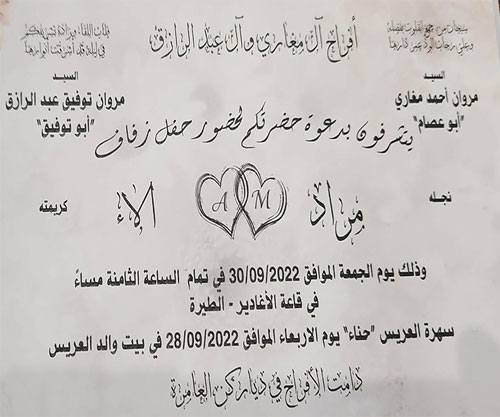 أفراح آل مغاري وآل عبد الرازق
السيد
مروان أحمد مغاري
"أبو عصام"
السيد
مروان توفيق عبد الرازق
"أبو توفيق"
يتشرفون بدعوة حضرتكم لحضور حفل زفاف
نجله
مراد
M
A
الاء
كريمته
وذلك يوم الجمعة الموافق 30/09/2022 في تمام الساعة الثامنة مساءً
في قاعة الأغادير - الطيرة
سهرة العريس "حناء" يوم الاربعاء الموافق 28/09/2022 في بيت والد العريس
دامت الأفراح في دياركن العامرة